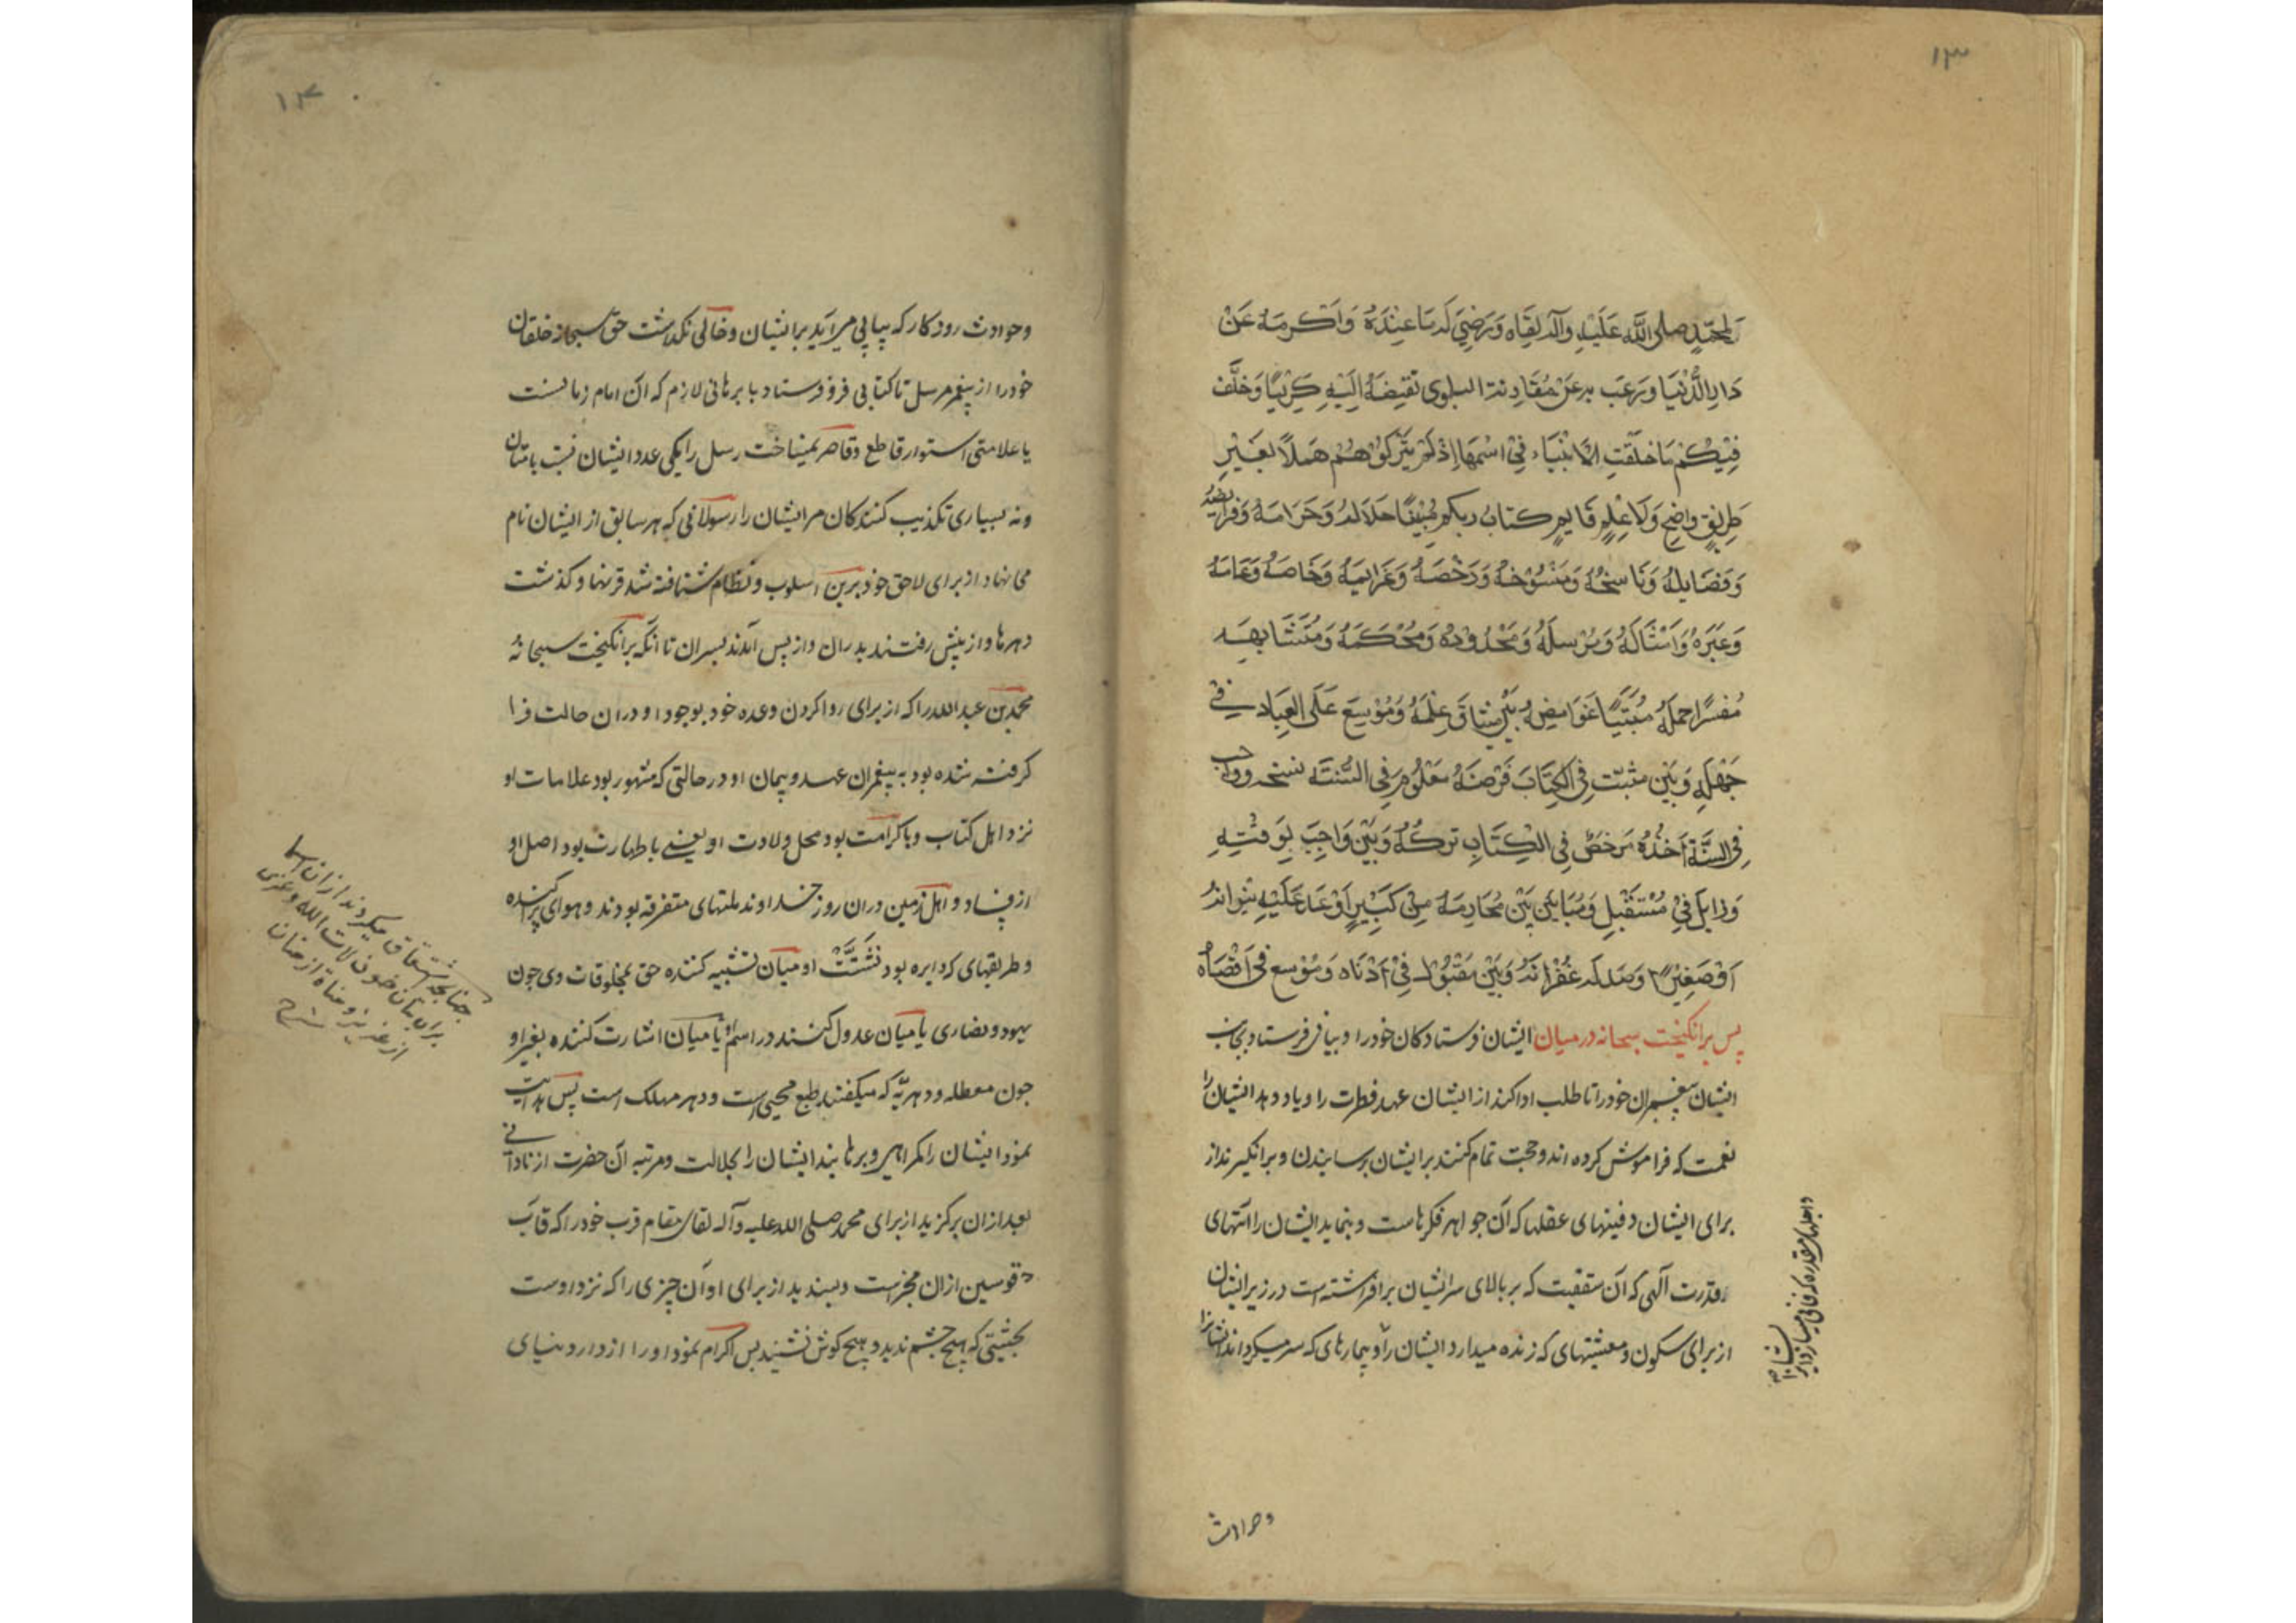 ۱۳
لمحمّد صلی اللّه علیه وآله لقاه ورضی له ما عنده واکرمه عن
دار الدّنیا ورغب به عن مقارنة البلوی فقبضه الیه کریما وخلّف
فیکم ما خلّفت الانبیاء فی اسمها اذ لم یترکوهم هملا بغیر
طریق واضح ولا علم قایم کتاب ربکم مبینا حلاله وحرامه وفرایضه
وفضایله وناسخه ومنسوخه ورخصه وعزایمه وخاصه وعامه
وعبره وامثاله ومرسله ومحدوده ومحکمه ومتشابهه
مفسرا جمله مبینا غوامضه بین میثاق علمه وموسع علی العباد فی
جهله وبین مثبت فی الکتاب فرضه معلوم فی السّنة نسخه وواجب
فی السنّة اخذه مرخص فی الکتاب ترکه وبین واجب لوقته
وزایل فی مستقبل ومباین بین محارمه من کبیر اوعد علیه نیرانه
او صغیر ارصد له غفرانه وبین مقبول فی ادناه وموسع فی اقصاه
پس برانکیخت سبحانه در میان ایشان فرستادکان خود را و پیاپی فرستاد بجانب
ایشان پیغمبران خود را تا طلب ادا کنند از ایشان عهد فطرت را و یاد دهد ایشان را
نعمت که فراموش کرده اند و حجت تمام کنند بر ایشان برسانیدن و برانکیزند از
برای ایشان دفینهای عقلها که آن جواهر فکرهاست و بنماید ایشان را آیتهای
قدرت آلهی که آن سقفیت که بر بالای سر ایشان برافراشته است در زیر ایشان
از برای سکون و معیشتهای که زنده میدارد ایشان را و بیمارهای که سر میکرداند ایشانرا
و اجلهای مقدره که فانی میسازد ایشانرا
وحوادث
۱۴
وحوادث روزکار که پیاپی می آید بر ایشان و خالی نکذاشت حق سبحانه خلقان
خود را از پیغمبر مرسل تا کتابی فرو فرستاد یا برهانی لازم که آن امام زمانست
یا علامتی استوار قاطع و قاصر نمیساخت رسل را یکی عدد ایشان نسبت بامتان
ونه بسیاری تکذیب کنندکان مر ایشان را رسولانی که هر سابق از ایشان نام
می نهاد از برای لاحق خود برین اسلوب و نظام شتافته شد قرنها و کذشت
دهرها و از پیش رفتند پدران و از پس آمدند پسران تا آنکه برانکیخت سبحانه
محمد بن عبد الله را که از برای روا کردن وعده خود بوجود او در ان حالت فرا
کرفته شده بود به پیغمبران عهد و پیمان او در حالتی که مشهور بود علامات او
نزد اهل کتاب و با کرامت بود محل ولادت او یعنی با طهارت بود اصل او
از فساد و اهل زمین در ان روز خداوند ملتهای متفرقه بودند و هوای پراکنده
و طریقهای که دایره بود تشتّت او میان تشبیه کننده حق بمخلوقات وی چون
یهود و نصاری یا میان عدول کننده در اسم او یا میان اشارت کننده بغیر او
چون معطله و دهریّه که میکفتند طبع محیی است و دهر مهلک است پس هدایت
نمود ایشان را از کمراهی و برهانید ایشان را بجلالت و مرتبه آن حضرت از نادانی
بعد از ان برکزید از برای محمد صلی الله علیه وآله لقای مقام قرب خود را که قاب
قوسین از ان مخبر است و پسندید از برای او آن چیزی را که نزد اوست
بحیثیتی که هیچ چشم ندید و هیچ کوش نشنید پس اکرام نمود او را از دار دنیای
چنانچه اشتقاق میکردند از ان اسما
برای بتان خود چون لات از الله و عزی
از عزیز و مناة از منان
شرح